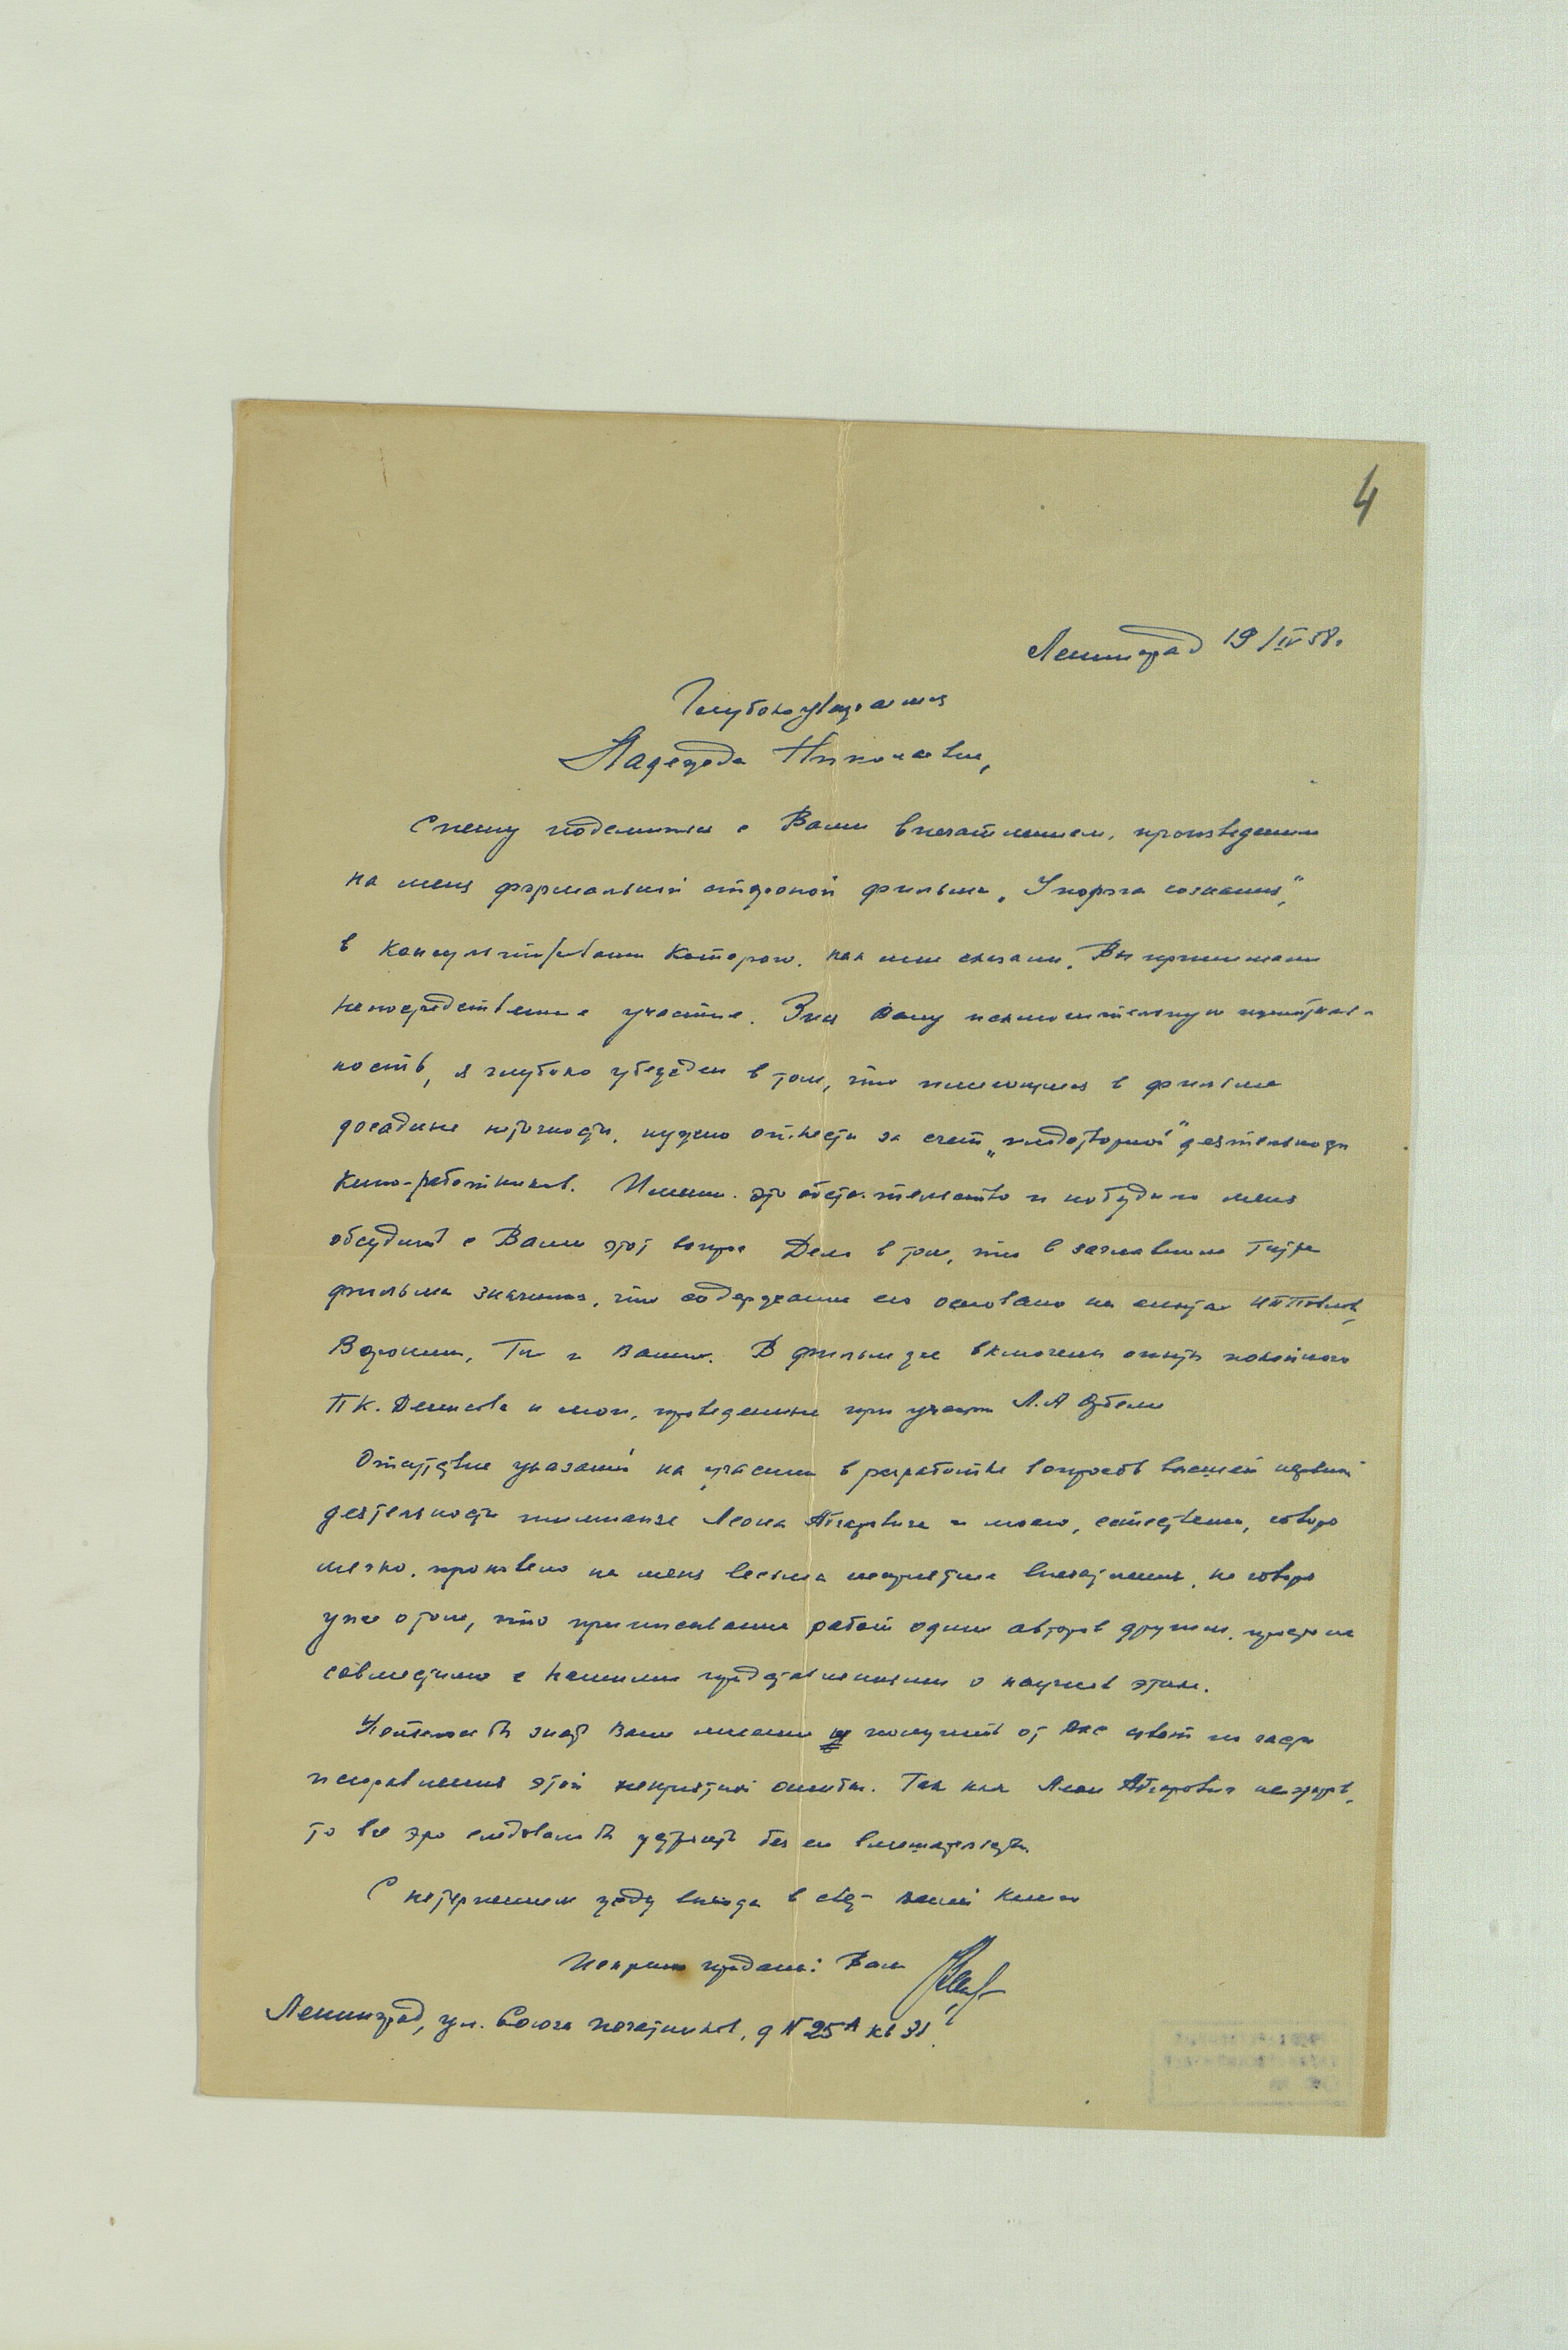 4
Ленинград 19/IV 58г.
Глубокоуважаемая
Надежда Николаевна,
Спешу поделиться с Вами впечатлением, произведенным
на меня формальной стороной фильма „У порога сознания",
в консультировании которого, как мне сказали, Вы принимали
непосредственное участие. Зная Вашу исключительную
ность, я глубоко убежден в том, что имеющиеся в фильме
досадные неточности, нужно отнести за счет „плодотворной" деятельности
кино-работников. Именно это обстоятельство и побудило меня
обсудить с Вами этот вопрос Дело в том, что в заглавном титре
фильма значится, что содержание его основано на опытах ИП Павлова,
Воронина, Тих и Ваших. В фильм же включены опыты покойного
П К. Денисова и мои, проведенные при участии Л.А Орбели
Отсутствие указаний на участие в разработке вопросов высшей нервной
деятельности шимпанзе Леона Абгаровича и моего, естественно, говоря
мягко, произвело на меня весьма неприятное впечатление, не говоря
уже о том, что приписывание работ одних авторов другим, просто не
совместимо с нашими представлениями о научной этике.
Хотелось бы знать Ваше мнение и получить от Вас совет по части
исправления этой неприятной ошибки. Так как Леон Абгарович нездоров,
то все это следовало бы устроить без его вмешательства.
С нетерпением жду выхода в свет Вашей книги
Искренно преданный Вам
Ленинград, ул. Союза Печатников, д N 25А кв 31.